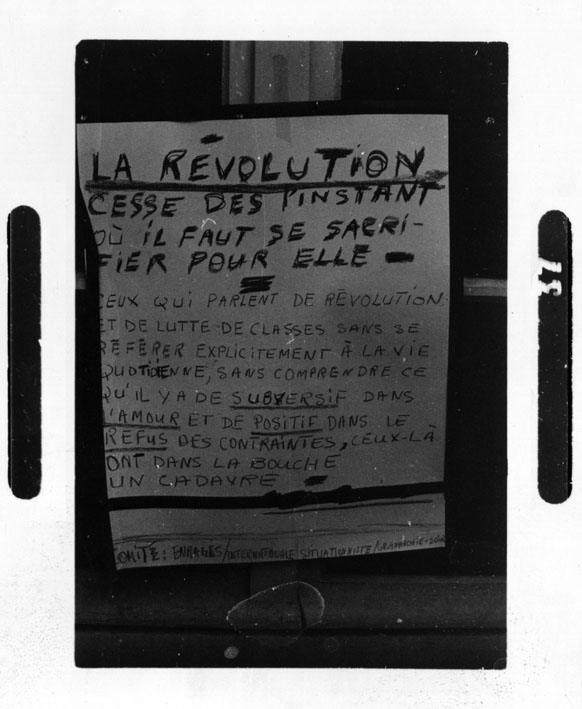 LA RÉVOLUTION
CESSE DES l'INSTANT
OÙ iL FAUT SE SACRi-
FiER POUR ELLE –
CEUX QUI PARLENT DE RÉVOLUTION
ET DE LUTTE DE CLASSES SANS SE
RÉFÉRER EXPLICITEMENT À LA VIE
QUOTIDIENNE, SANS COMPRENDRE CE
QU'IL Y A DE SUBVERSIF DANS
L'AMOUR ET DE POSITIF DANS LE
REFUS DES CONTRAINTES, CEUX-LÀ
ONT DANS LA BOUCHE
UN CADAVRE –
COMITÉ: ENRAGÉS/INTERNATIONALE SITUATIONNISTE/
37